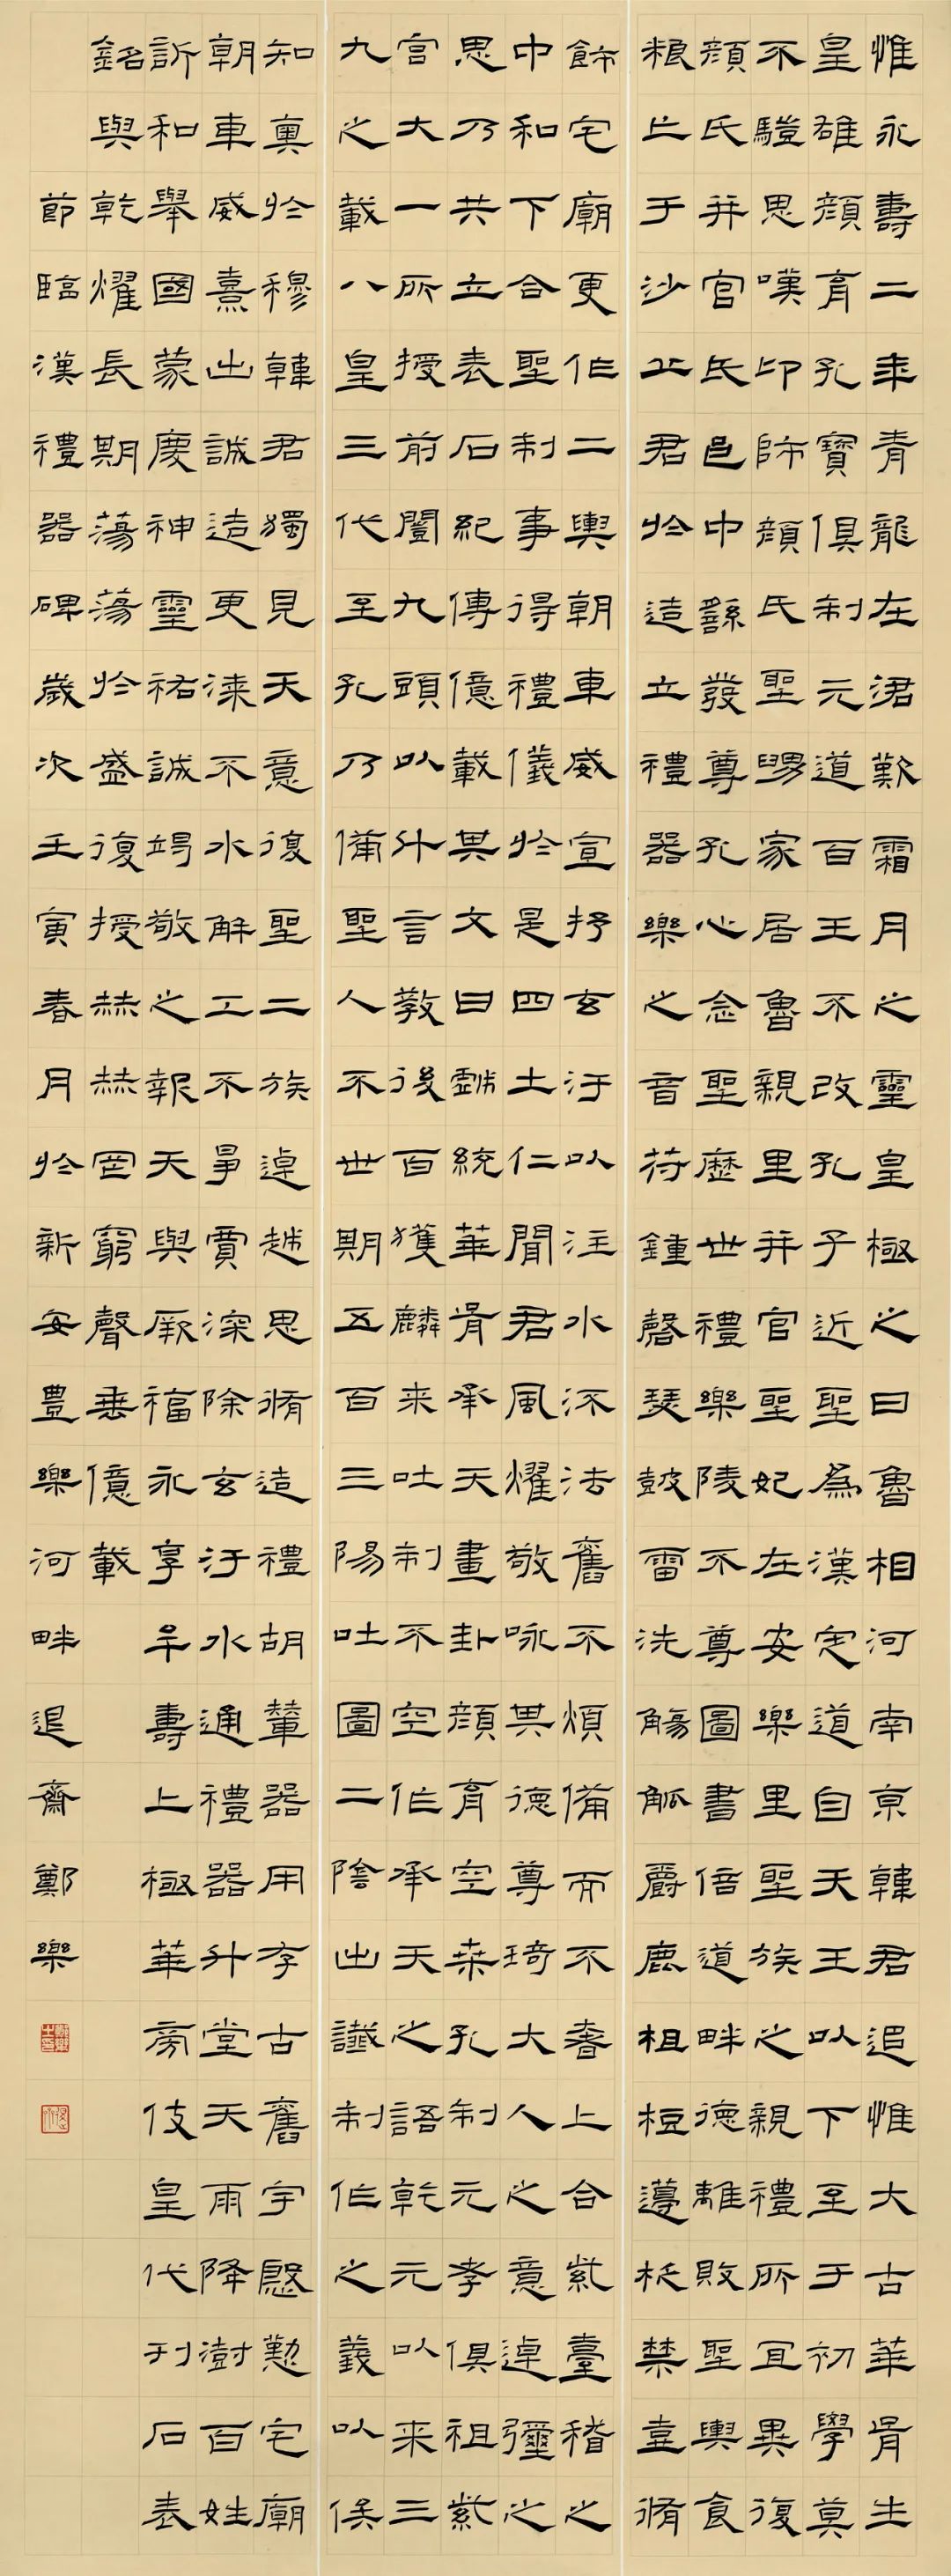 惟永壽二年青龍在涒歎霜月之靈皇極之日魯相河南京韓君追惟大古華胥生
皇雄顏育孔寶俱制元道百王不改孔子近聖為漢定道自天王以下至于初學莫
不驥思嘆卬師顏氏聖舅家居魯親里并官聖妃在安樂里聖族之親禮所宜異復
顏氏并官氏邑中繇發尊孔心念聖歷世禮樂陵不尊圖書倍道畔德離敗聖輿食
糧亡于沙丘君於造立禮器樂之音符鍾磬瑟鼓雷洗觴觚爵鹿柤梪籩柉禁壺脩
飾宅廟更作二輿朝車威宣抒玄汙以注水流法舊不煩備而不奢上合紫臺稽之
中和下合聖制事得禮儀於是四土仁聞君風燿敬咏其德尊琦大人之意逴彌之
思乃共立表石紀傳億載其文曰戲統華胥承天畫卦顏育空桑孔制元孝俱祖紫
宮大一所授前闓九頭以什言教後百獲麟来吐制不空作承天之語乾元以来三
九之載八皇三代至孔乃備聖人不世期五百三陽吐圖二陰出讖制作之義以俟
知奧於穆韓君獨見天意復聖二族逴越思脩造禮胡輦器用存古舊宇慇懃宅廟
朝車威熹出誠造更漆不水解工不爭賈深除玄汙水通禮器升堂天雨降澍百姓
訢和舉國蒙慶神靈祐誠竭敬之報天與厥福永享牟壽上極華旁伎皇代刊石表
銘與乾燿長期蕩蕩於盛復授赫赫罔窮聲垂億載
節臨漢禮器碑歲次壬寅春月於新安豊樂河畔退齋鄭樂